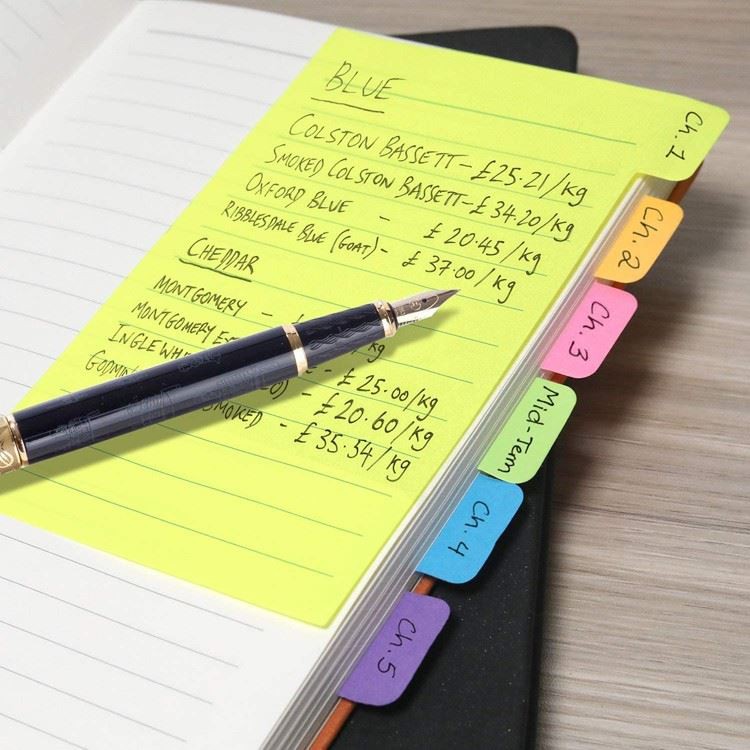 BLUE
COLSTON BASSETT - £25.21/kg
SMOKED COLSTON BASSETT - £34.20/kg
OXFORD BLUE - £20.45/kg
RIBBLESDALE BLUE (GOAT) - £37.00/kg
CHEDDAR
MONTGOMERY - £
MONTGOMERY /kg
- £25.00/kg
- £20.60/kg
SMOKED - £35.54/kg
Ch. 1
Ch. 2
Ch. 3
Mid-Term
Ch. 4
Ch. 5